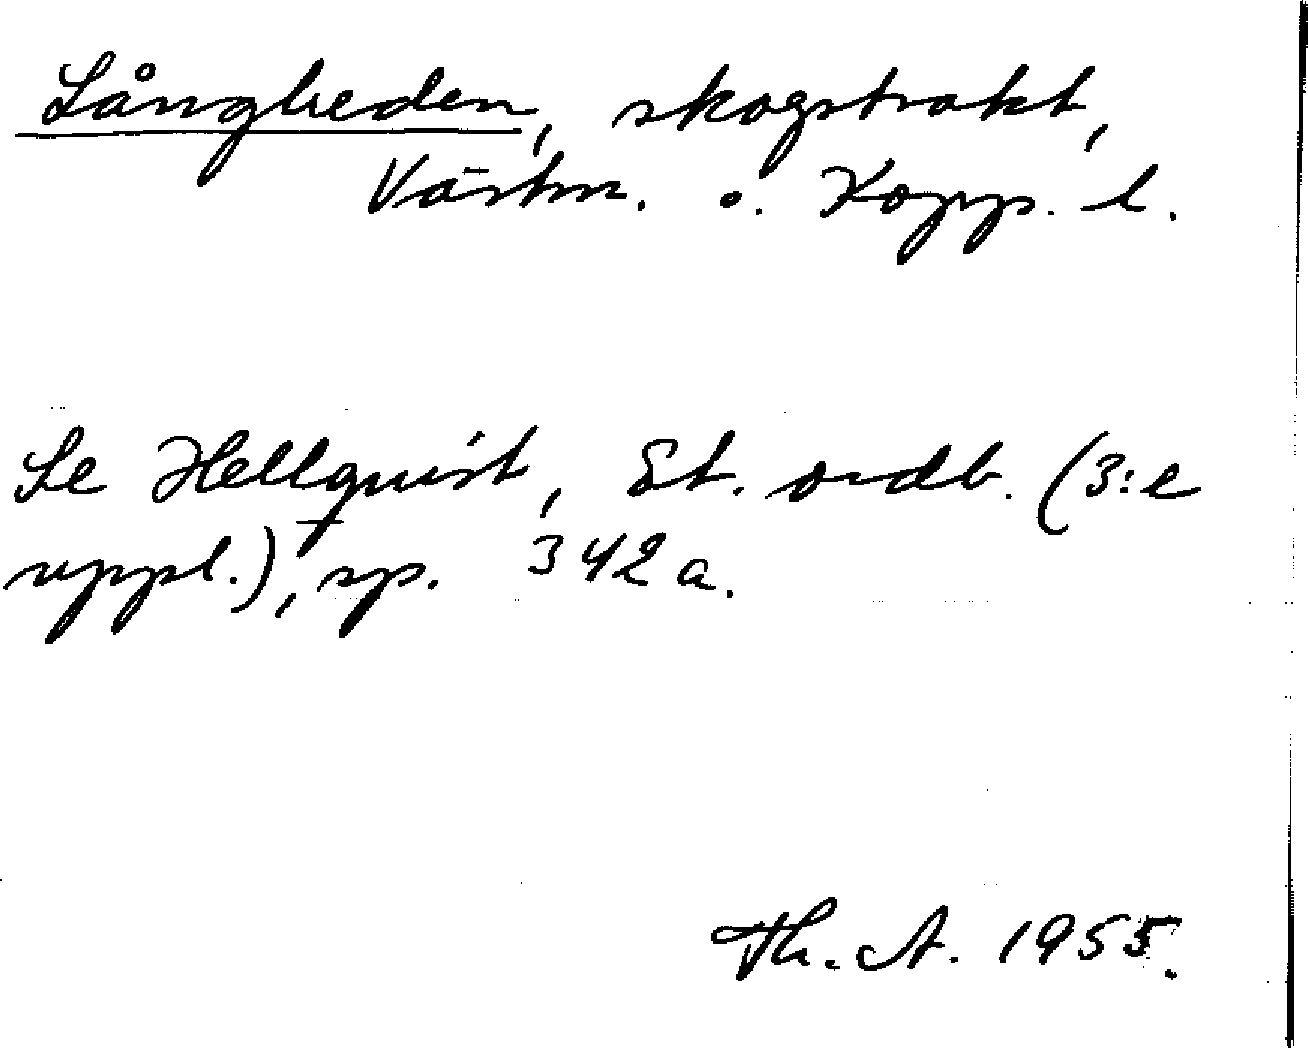 Långheden, skogstrakt,
Västm. o. Kopp. l.
Se Hellquist, Et. ordb. (3:e
uppl.), sp. 342 a.
Th. A. 1955.